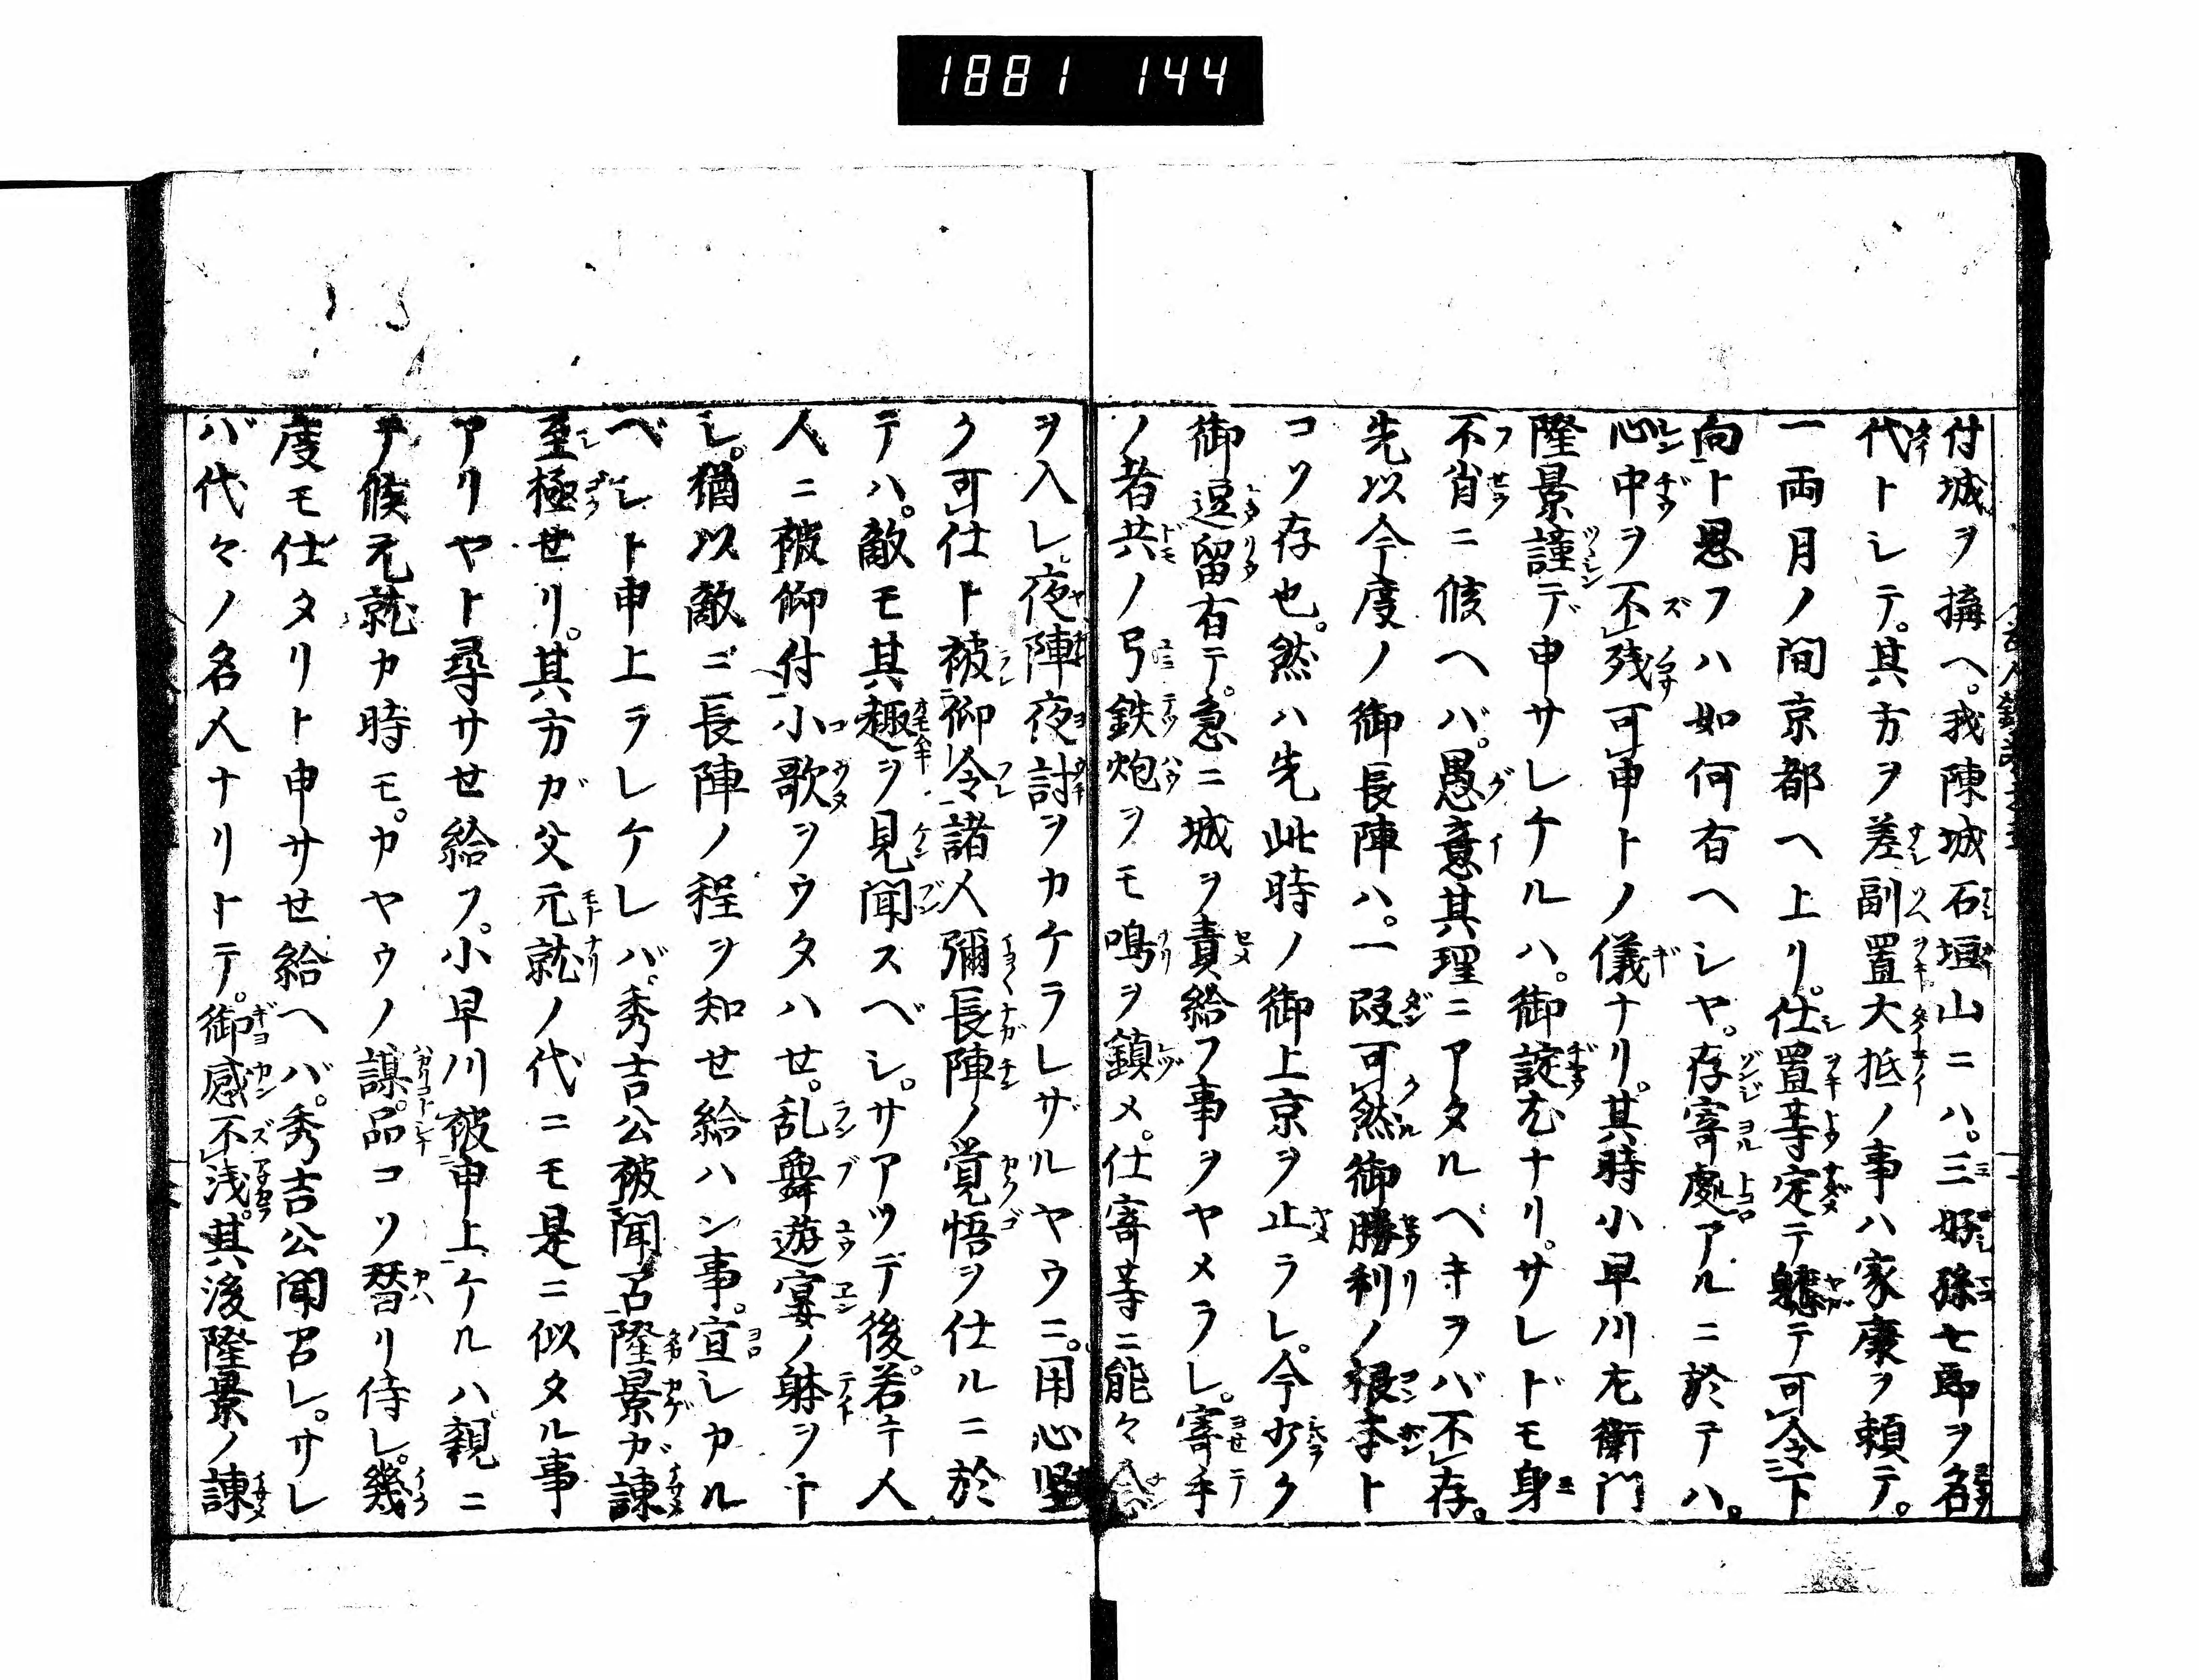 1881 144
付城ヲ搆ヘ。我陳城石垣山ニハ。三好孫七郎ヲ名
代トシテ。其方ヲ差副置大抵ノ事ハ家康ヲ頼テ。
一両月ノ間京都ヘ上リ。仕置等定テ軈テ可令下
向ト思フハ如何有ヘシヤ。存寄處アルニ於テハ。
心中ヲ不残可申トノ儀ナリ。其時小早川左衛門
隆景謹デ申サレケルハ。御諚尤ナリ。サレドモ身
不肖ニ候ヘバ。愚意其理ニアタルベキヲバ不存。
先以今度ノ御長陣ハ。一段可然御勝利ノ根本ト
コソ存也。然ハ先此時ノ御上京ヲ止ラレ。今少ク
御逗留有テ。急ニ城ヲ責給フ事ヲヤメラレ。寄手
ノ者共ノ弓鉄炮ヲモ鳴ヲ鎮メ。仕寄等ニ能々念
ヲ入レ。夜陣夜討ヲカケラレザルヤウニ。用心堅
ク可仕ト被仰令諸人彌長陣ノ覚悟ヲ仕ルニ於
テハ。敵モ其趣ヲ見聞スベシ。サアツデ後。若キ人
人ニ被仰付小歌ヲウタハせ。乱舞遊宴ノ躰ヲナ
シ。猶以敵ニ長陣ノ程ヲ知せ給ハン事。宜シカル
ベシト申上ラレケレバ。秀吉公被聞召隆景ガ諌
至極せリ。其方ガ父元就ノ代ニモ是ニ似タル事
アリヤト尋サせ給フ。小早川被申上ケルハ親ニ
テ候元就カ時モ。カヤウノ謀。品コソ替リ侍レ。幾
度モ仕タリト申サせ給ヘバ。秀吉公聞召レ。サレ
バ代々ノ名人ナリトテ。御感不浅。其後隆景ノ諌